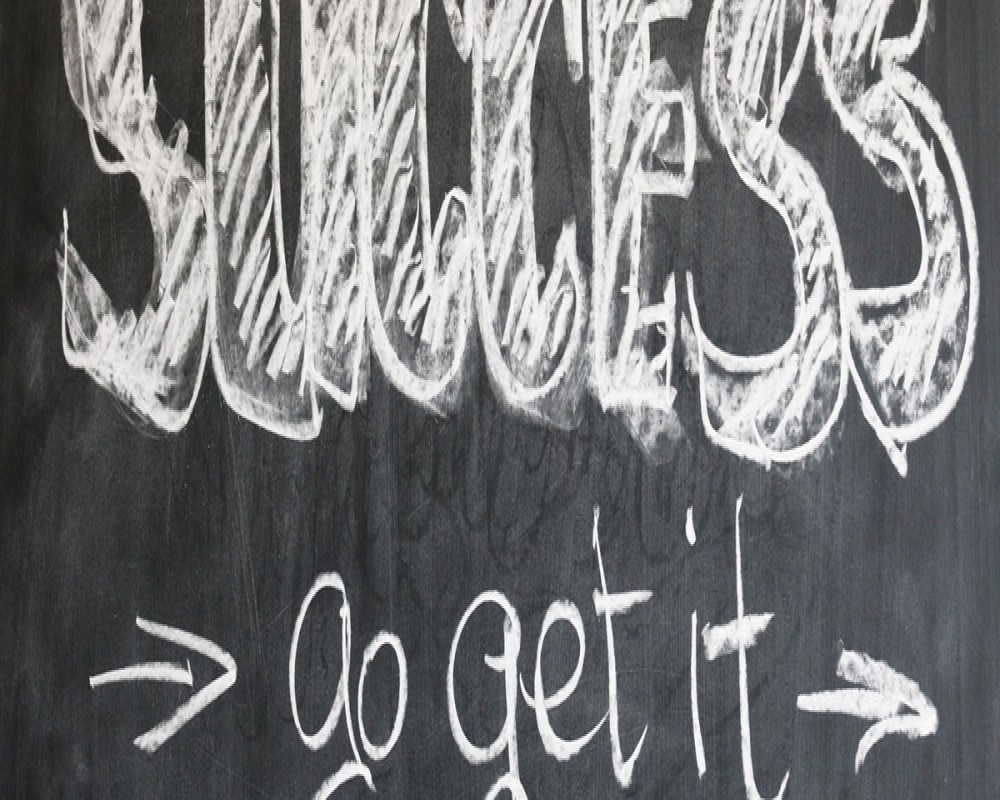 SUCCESS
→ go get it →